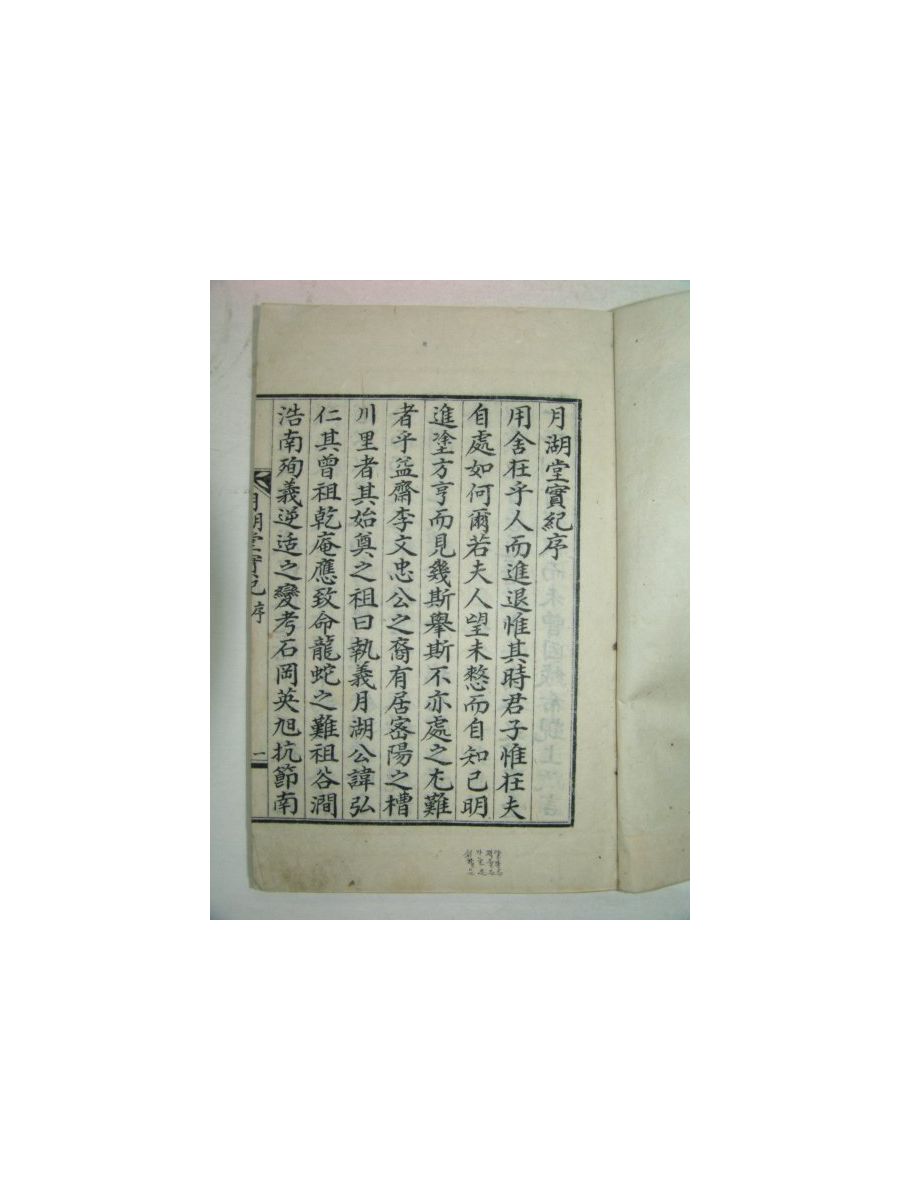 月湖堂實紀序
用舍在乎人而進退惟其時君子惟在夫
自處如何爾若夫人望未憗而自知已明
進塗方亨而見幾斯擧斯不亦處之尤難
者乎益齋李文忠公之裔有居密陽之槽
川里者其始奠之祖曰執義月湖公諱弘
仁其曾祖乾庵應致命龍蛇之難祖谷澗
浩南殉義逆适之變考石岡英旭抗節南
月湖堂實紀 序 一